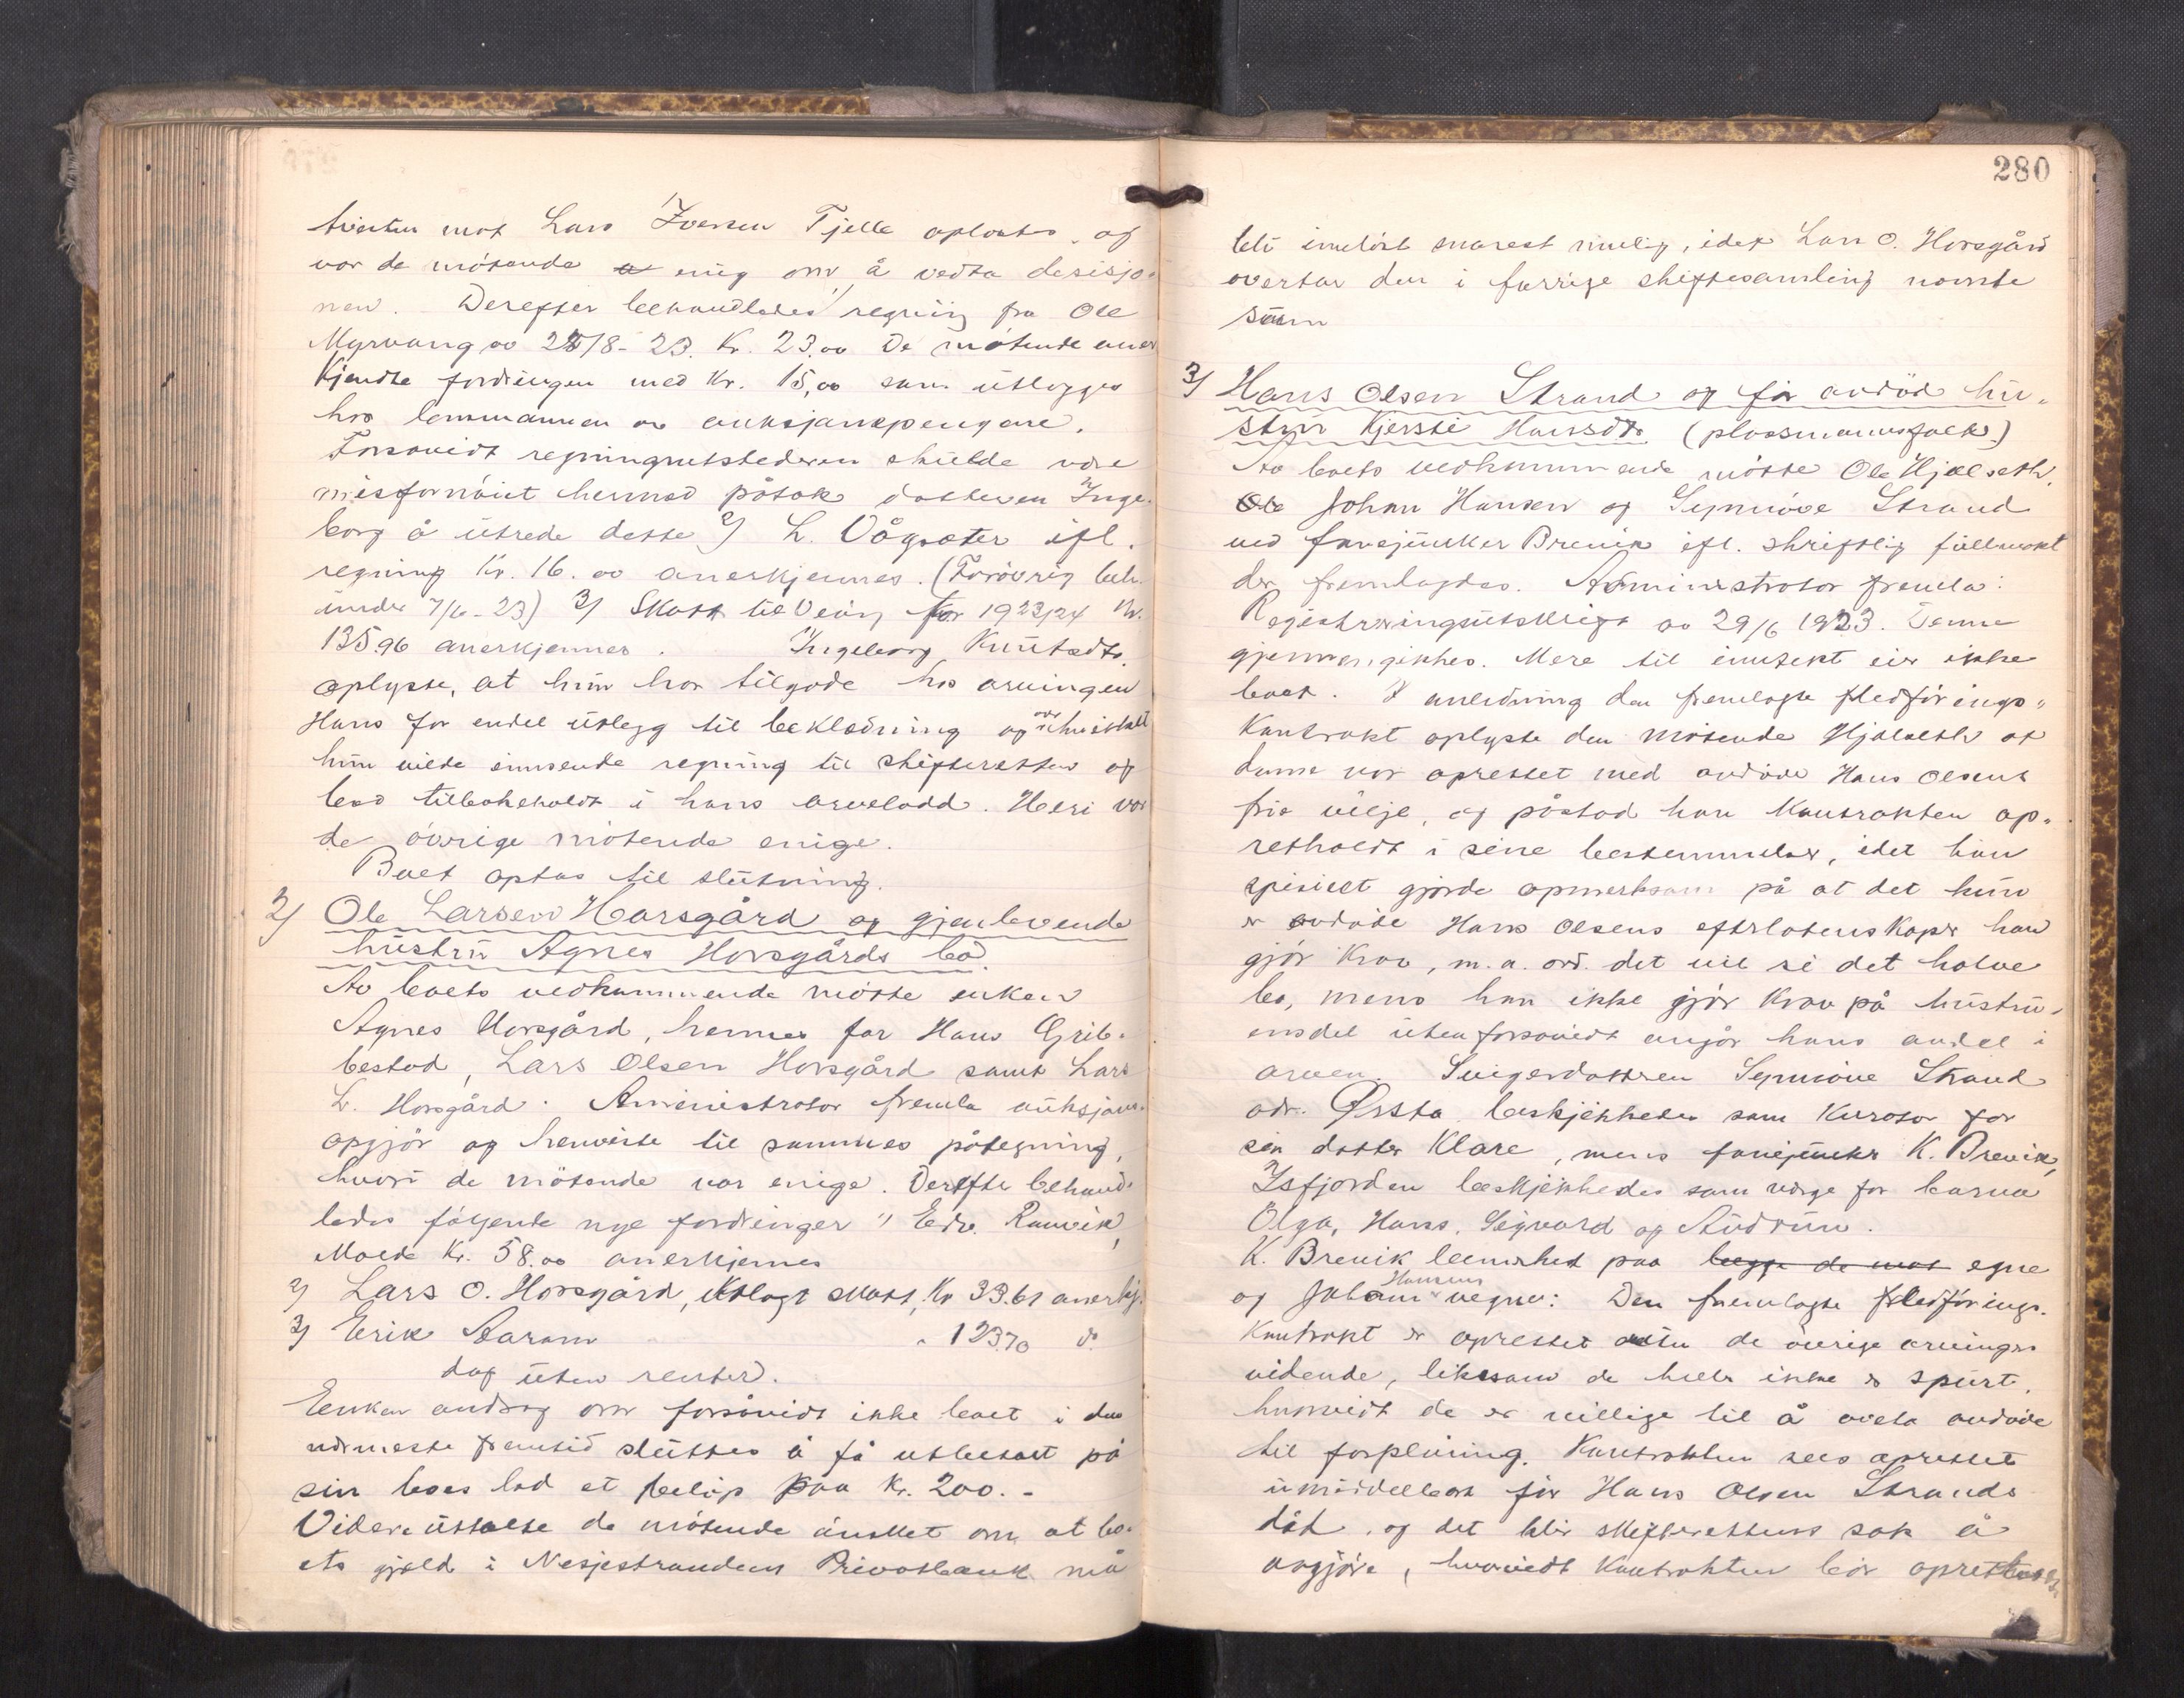 mot Lars Iversen Tjelle oplæstes, og
var de mötende enig om å vedta desisjo-
nen. Derefter behandledes regning fra Ole
Myrvang av 28/8-23. Kr. 23.00 De mötende aner
kjendte fordringen med Kr. 15,00 som utlegges
hos lensmannen av auksjonspengene.
Forsåvidt regningsutstederen skulde være
misfornöiet hermed påtok datteren Inge-
borg å utrede dette 2) L. Vågsæter ifl.
regning Kr. 16.00 anerkjennes. (Forövrig beh.
under 7/6-23) 3) Skatt til Veöy for 1923/24 Kr.
135.96 anerkjennes. Ingeborg Knutsdtr.
oplyste, at hun har tilgode hos arvingen
Hans for endel utlegg til beklædning og
hun vilde innsende regning til skifteretten og
bad tilbakeholdt i hans arvelodd. Heri var
de övrige mötende enige.
Boet optas til slutning.
2) Ole Larsen Horsgård og gjenlevende
hustru Agnes Horsgårds bo.
Av boets vedkommende mötte enken
Agnes Horsgård, hennes far Hans Grib-
bestad, Lars Olsen Horsgård samt Lars
L. Horsgård. Administrator fremla auksjons-
opgjör og henviste til sammes påtegning,
hvori de mötende var enige. Derefter behand-
ledes fölgende nye fordringer 1) Edv. Ranvik,
Molde Kr. 58.00 anerkjennes
2) Lars O. Horsgård, utlagt skatt, Kr 33.61 anerkj.
3) Erik Aaram " 123.70 do
dog uten renter.
Enken androg om forsåvidt ikke boet i den
nærmeste fremtid sluttes å få utbetalt på
sin boslod et belöp paa Kr. 200.-
Videre uttalte de mötende önsket om at bo-
ets gjeld i Nesjestrandens Privatbank må
280
bli innlöst snarest mulig, idet Lars O. Horsgård
overtar den i forrige skiftesamling nevnte
sum
3) Hans Olsen Strand og för avdöd hu-
stru Kjersti Hansdtr. (plassmannsfolk)
Av boets vedkommende mötte Ole Hjelseth,
Johan Hansen og Synnöve Strand
ved furejunker Brevik ifl. skriftlig fullmakt
der fremlagdes. Administrator fremla:
Registreringsutskrift av 29/6 1923. Denne
gjennemgikkes. Mere til inntekt eier ikke
boet. I anledning den fremlagte fledförings-
kontrakt oplyste den mötende Hjelseth at
denne var oprettet med avdöde Hans Olsens
frie vilje, og påstod han kontrakten op-
retholdt i sine bestemmelser, idet han
spesielt gjorde opmerksom på at det kun
er avdöde Hans Olsens efterlatenskaper han
gjör krav, m. a. ord. det vil si det halve
bo, mens han ikke gjör krav på hustru-
ensdel uten forsåvidt angår hans andel i
arven. Svigerdatteren Synnöve Strand
adr. Ørsta beskjikkedes som kurator for
sin datter Klara, mens K. Brevik,
Isfjorden beskjikkedes som verge for barna
Olga, Hans, Sigvard og Audrun.
K. Brevik bemerket paa egne
og Johan Hansens vegne: Den fremlagte fledförings-
kontrakt er oprettet uten de övrige arvingers
vidende, likesom de heller ikke er spurt,
hvorvidt de er villige til å overta avdöde
til forpleining. Kontrakten sees oprettet
umiddelbart för Hans Olsen Strands
död, og det blir skifterettens sak å
avgjöre, hvorvidt kontrakten bör